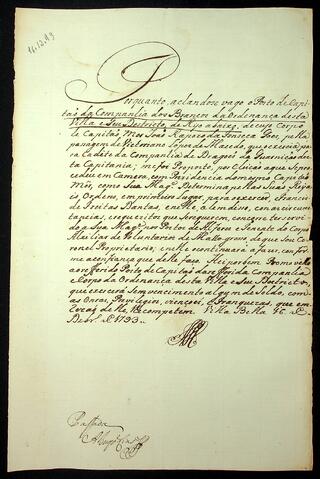 16.12.93
Porquanto, aclandose vago o Posto de Capi-
tão da Companhia dos Brancos da Ordenança desta
Villa e Seu Destricto de Ryo abaixo, de cujo Corpo
he Capitão Mor José Rapozo da Fonseca Goes, pella
passagem de Victoriano Lopes de Macedo, que exercia
para Cadete da Companhia de Dragões da Guarnição des-
ta Capitania; me foi Proposto, por Eleição a que Se pro-
cedeu em Camera, com Prezidencia do mesmo Capitão
Mór, como Sua Mag.e Determina pellas Suas Reaes
Ordens, em primeiro lugar, para o exercer, Francisco
de Freitas Dantas, e nelle, alem de us, con as circuns-
tancias, e requezitos que Se requerem, concorre ter servi-
do a Sua Mag.e nos Postos de Alferes e Tenente do Corpo
Auxiliar de Voluntarios de Matto grosso, de que Sou Co-
ronel Proprietario; e nelle continuará a faser, confor-
me a confiança que delle faço: Hei por bem Promovello
ao referido Posto de Capitão da referida Companhia
e Corpo da Ordenança desta Villa e seu Destricto,
que exercerá Sem vencimento algum de Soldo, com
as Onras, Privilegios, izençoes, e Franquezas, que em
razão delle lhe competem. Villa Bella 16. de
Dezbr.o de 1793.
Passada